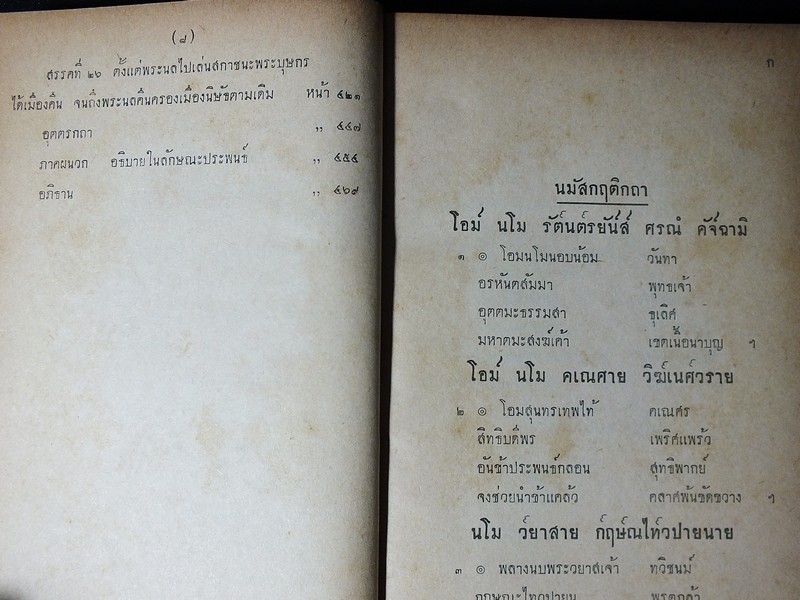 (๘)
สรรคที่ ๒๖ ตั้งแต่พระนลไปเล่นสกาชนะพระบุษกร
ได้เมืองคืน จนถึงพระนลคืนครองเมืองนิษัธตามเดิม หน้า ๔๒๑
อุตตรกถา ,, ๔๔๗
ภาคผนวก อธิบายในลักษณะประพนธ์ ,, ๔๕๔
อภิธาน ,, ๔๖๙
ก
นมัสกฤติกถา
โอม์ นโม รัต๎นต๎รยัน๎ส๎ ศรณํ คัจ๎ฉามิ
๑ ๏ โอมนโมนอบน้อม วันทา
อรหันตสัมมา พุทธเจ้า
อุตตมะธรรมสา ธุเลิศ
มหาตมะสงฆ์เค้า เขตเนื้อนาบุญ ฯ
โอม์ นโม คเณศาย วิฆ์เนศ์วราย
๒ ๏ โอมสุนทรเทพไท้ คเณศร
สิทธิบดีพร เพริศแพร้ว
อันข้าประพนธ์กลอน สุทธิพากย์
จงช่วยนำข้าแคล้ว คลาศพ้นขัดขวาง ฯ
นโม ว์ยาสาย ก์ฤษ์ณไท์วปายนาย
๓ ๏ พลางนบพระวยาสเจ้า ทวิชนม์
กฤษณะไทวปายน